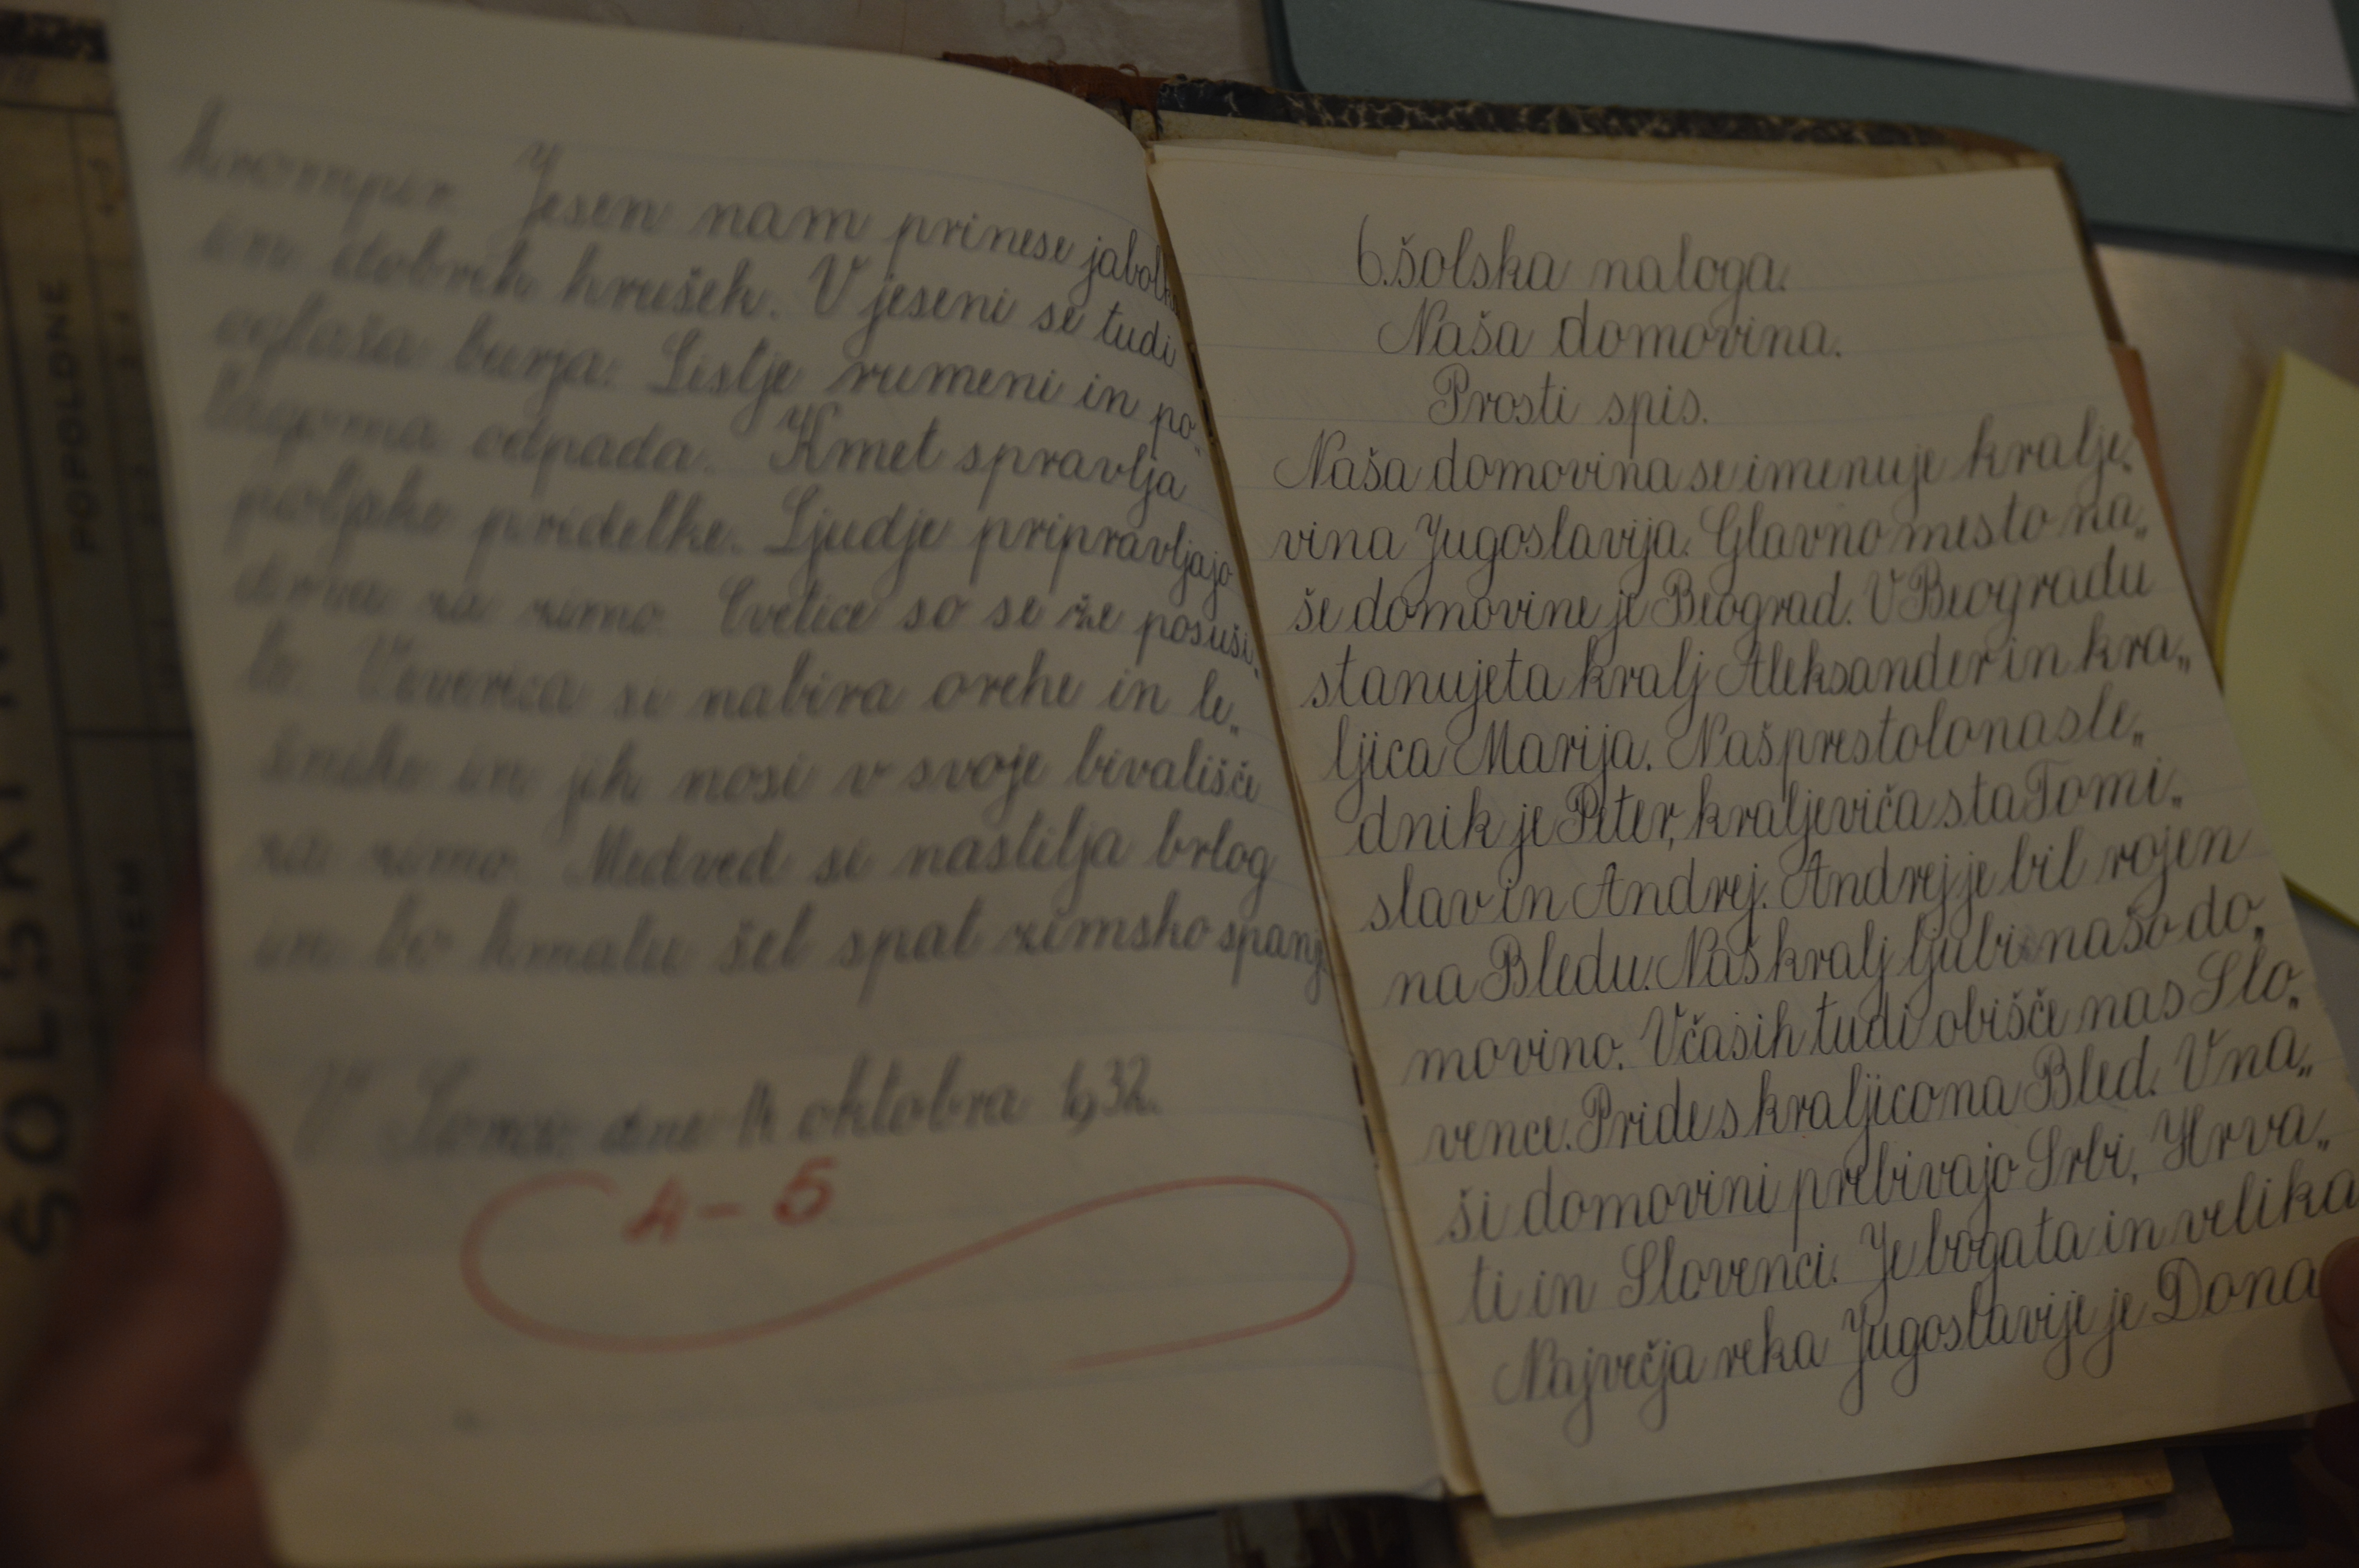 krompir. Jesen nam prinese jabolk
in dobrih hrušek. V jeseni se tudi
oglaša burja. Listje rumeni in po„
lagoma odpada. Kmet spravlja
poljske pridelke. Ljudje pripravljajo
drva za zimo. Cvetice so se že posuši„
le. Veverica si nabira orehe in le„
šnike in jih nosi v svoje bivališče
za zimo. Medved si nastilja brlog
in bo kmalu šel spat zimsko spanj
V dne oktobra 1932.
4 - 5
6. šolska naloga.
Naša domovina.
Prosti spis.
Naša domovina se imenuje kralje„
vina Jugoslavija. Glavno mesto na„
še domovine je Beograd. V Beogradu
stanujeta kralj Aleksander in kra„
ljica Marija. Naš prestolonasle„
dnik je Peter, kraljeviča sta Tomi„
slav in Andrej. Andrej je bil rojen
na Bledu. Naš kralj ljubi našo do„
movino. Včasih tudi obišče nas Slo„
vence. Pride s kraljico na Bled. V na„
ši domovini prebivajo Srbi, Hrva„
ti in Slovenci. Je bogata in velika
Največja reka Jugoslavije je Dona
POPOLDNE
ŠOLSKI